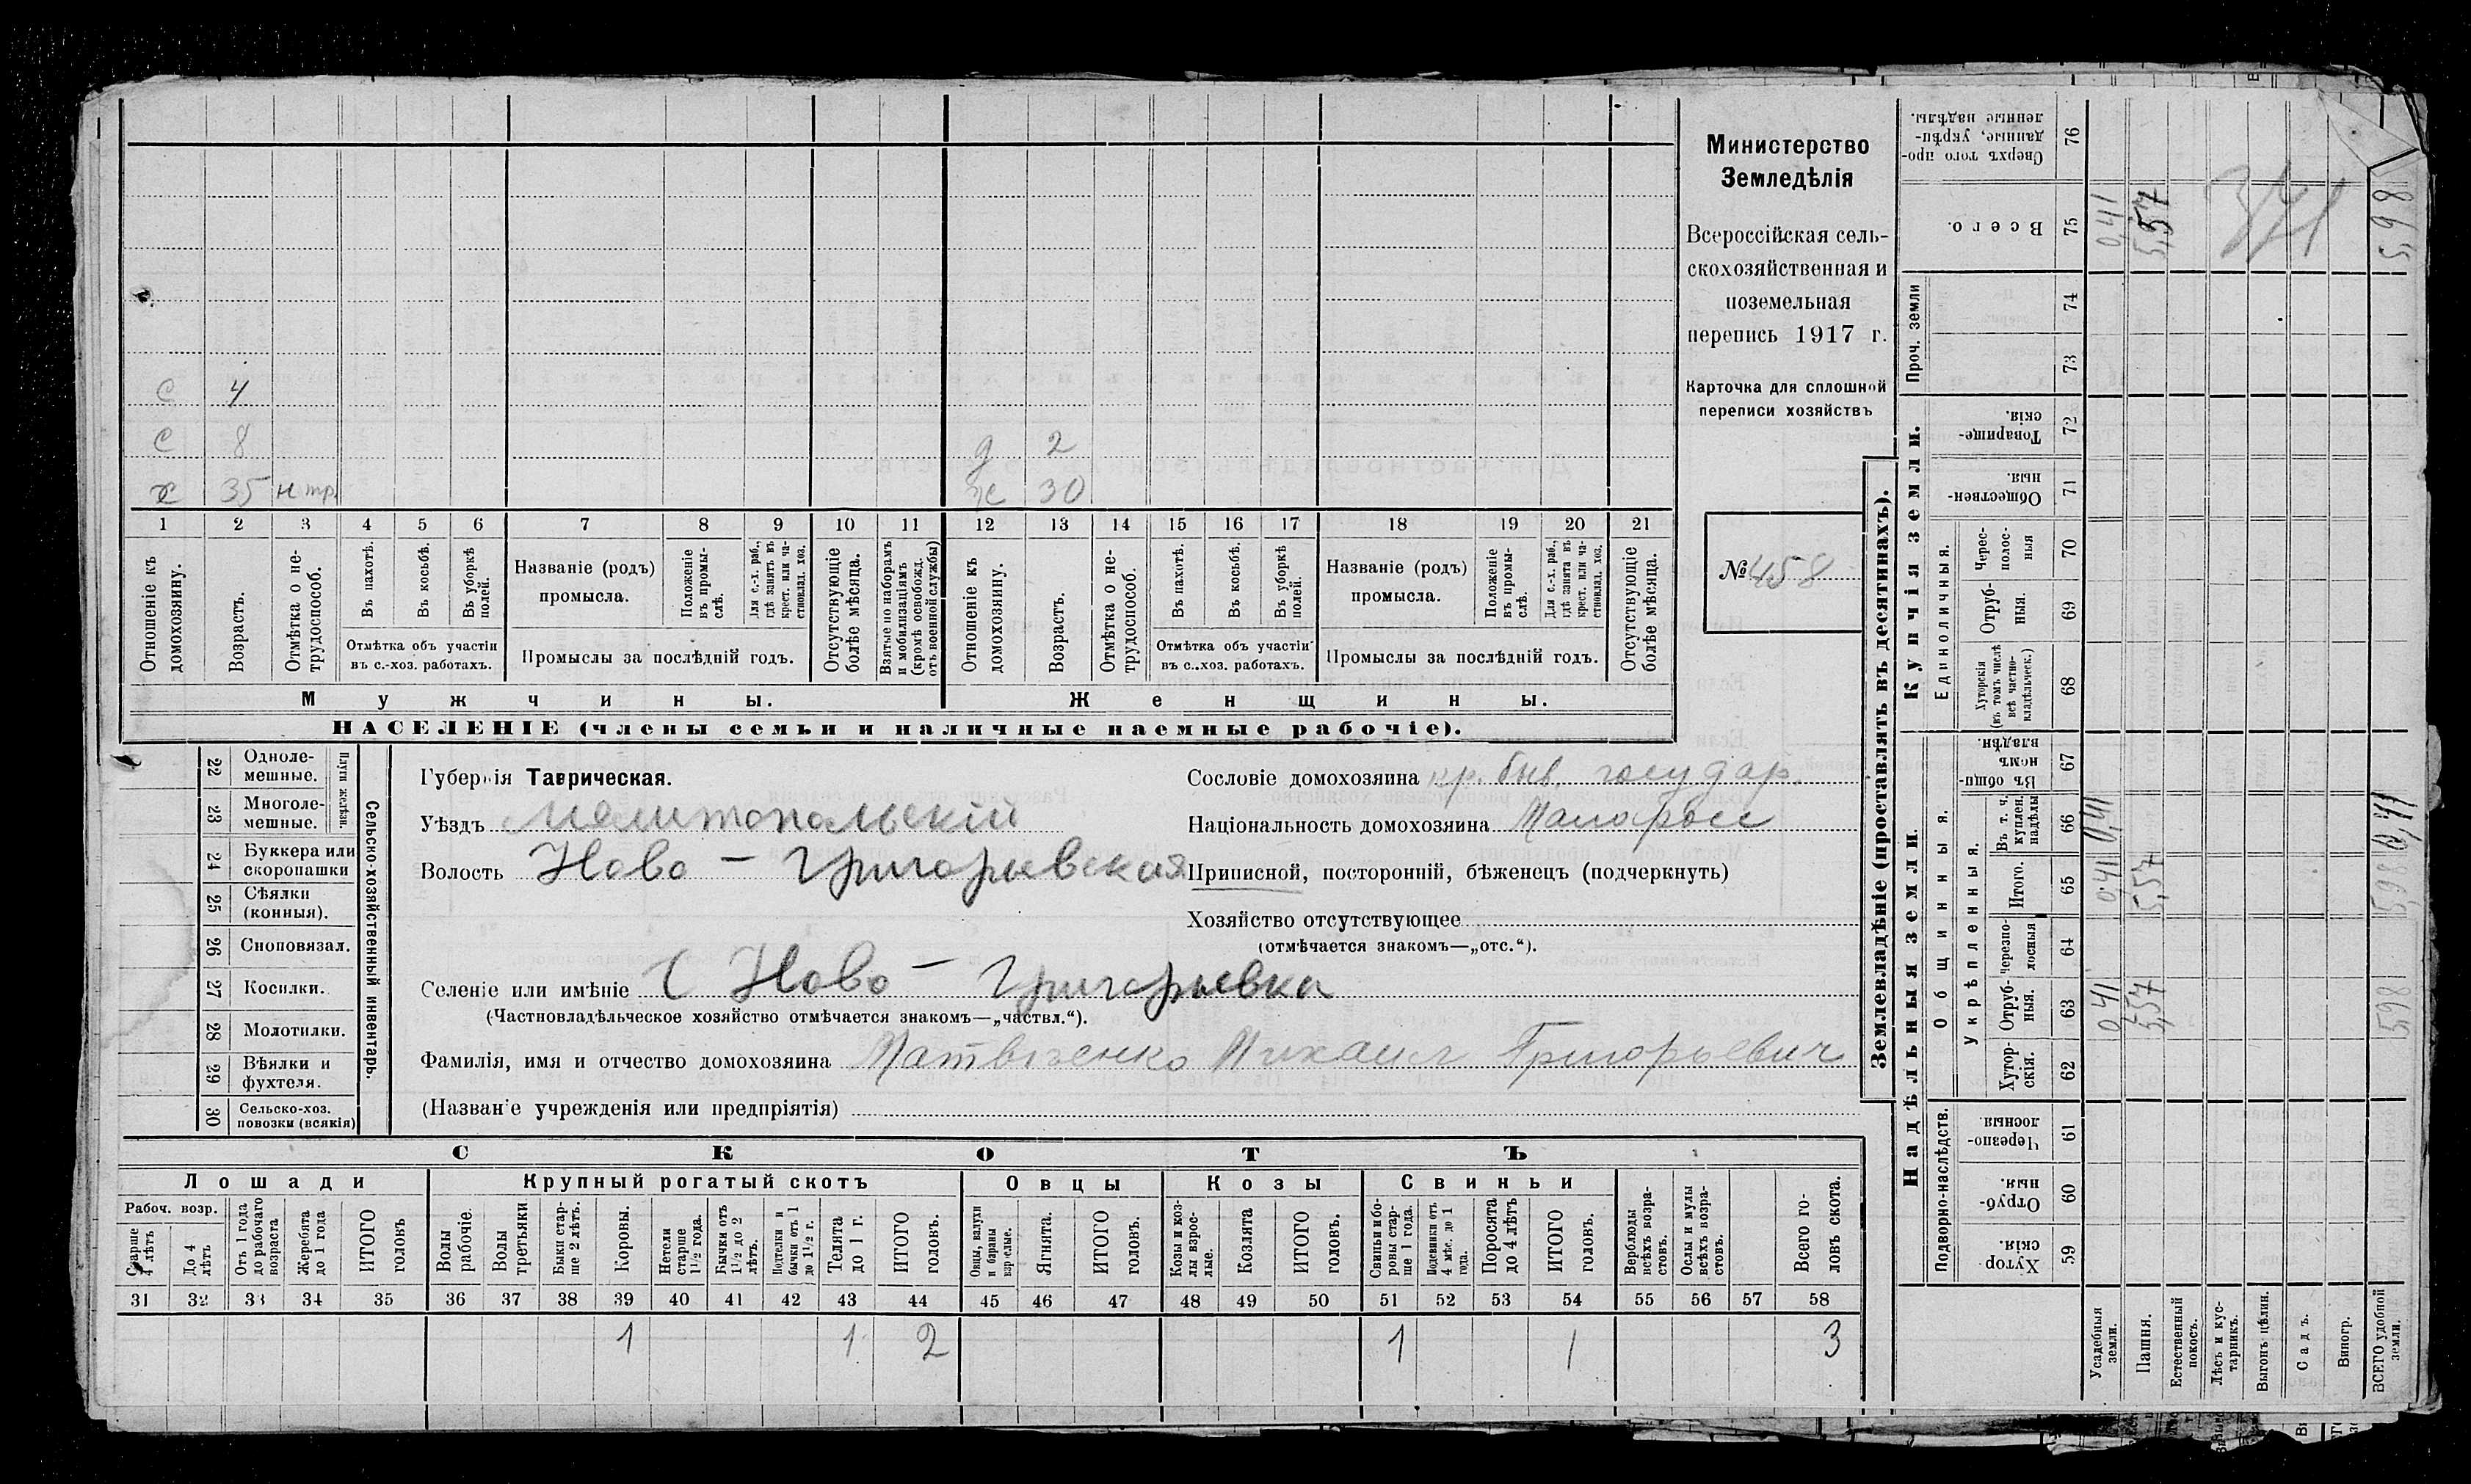 С 4
С 8 д 2
х 35 н тр. ж 30
1 2 3 4 5 6 7 8 9 10 11 12 13 14 15 16 17 18 19 20 21
Отношеніе къ домохозяину.
Возрастъ.
Отмѣтка о не-трудоспособ.
Въ пахотѣ.
Въ косьбѣ.
Въ уборкѣ полей.
Отмѣтка объ участіи
въ с.-хоз. работахъ.
Названіе (родъ)
промысла.
Положеніе въ промы-слѣ.
Для с.-х. раб., гдѣ занятъ въ крест. или ча-стновлад. хоз.
Промыслы за послѣдній годъ.
Отсутствующіе болѣе мѣсяца.
Взятые по наборамъ и мобилизаціямъ (кромѣ освобожд. отъ военной службы)
Отношеніе къ домохозяину.
Возрастъ.
Отмѣтка о не-трудоспособ.
Въ пахотѣ.
Въ косьбѣ.
Въ уборкѣ полей.
Отмѣтка объ участіи
въ с.-хоз. работахъ.
Названіе (родъ)
промысла.
Положеніе въ промы-слѣ.
Для с.-х. раб., гдѣ занята въ крест. или ча-стновлад. хоз.
Промыслы за послѣдній годъ.
Отсутствующіе болѣе мѣсяца.
Мужчины. Женщины.
НАСЕЛЕНІЕ (члены семьи и наличные наемные рабочіе).
Министерство
Земледѣлія
Всероссійская сель-
скохозяйственная и
поземельная
перепись 1917 г.
Карточка для сплошной
переписи хозяйствъ
№ 458
22 Одноле-мешные.
23 Многоле-мешные.
Плуги желѣзн.
24 Буккера или скоропашки
25 Сѣялки (конныя).
26 Сноповязал.
27 Косилки.
28 Молотилки.
29 Вѣялки и фухтеля.
30 Сельско-хоз. повозки (всякія)
Сельско-хозяйственный инвентарь.
Губернія Таврическая.
Уѣздъ Мелитопольскій
Волость Ново - Григорьевская
Сословіе домохозяина кр. быв. государ.
Національность домохозяина Малоросс
Приписной, посторонній, бѣженецъ (подчеркнуть)
Хозяйство отсутствующее
(отмѣчается знакомъ—„отс.“).
Селеніе или имѣніе с Ново - Григорьевка
(Частновладѣльческое хозяйство отмѣчается знакомъ—„частвл.“).
Фамилія, имя и отчество домохозяина Матвѣенко Михаил Григорьевич
(Названіе учрежденія или предпріятія)
СКОТЪ
Лошади Крупный рогатый скотъ Овцы Козы Свиньи
Рабоч. возр.
Старше 4 лѣтъ
До 4 лѣтъ
Отъ 1 года до рабочаго возраста
Жеребята до 1 года
ИТОГО головъ
Волы рабочіе.
Волы третьяки
Быки стар-ше 2 лѣтъ.
Коровы.
Нетели старше 1½ года.
Бычки отъ 1½ до 2 лѣтъ.
Подтелки и бычки отъ 1 до 1½ г.
Телята до 1 г.
ИТОГО головъ.
Овцы, валухи и бараны взрослые.
Ягнята.
ИТОГО головъ.
Козы и коз-лы взрос-лые.
Козлята
ИТОГО головъ.
Свиньи и бо-ровы стар-ше 1 года.
Подсвинки отъ 4 мѣс. до 1 года.
Поросята до 4 лѣтъ
ИТОГО головъ.
Верблюды всѣхъ возра-стовъ.
Ослы и мулы всѣхъ возра-стовъ.
Всего го-ловъ скота.
31 32 33 34 35 36 37 38 39 40 41 42 43 44 45 46 47 48 49 50 51 52 53 54 55 56 57 58
1 1 2 1 1 3
Землевладѣніе (проставлять въ десятинахъ).
Надѣльныя земли. Купчія земли.
Подворно-наслѣдств.
Общинныя.
Укрѣпленныя.
Единоличныя.
Проч. земли
Хутор-скія. 59
Отруб-ныя. 60
Черезпо-лосныя. 61
Хутор-скія. 62
Отруб-ныя. 63
черезпо-лосныя 64
Итого. 65
Въ т. ч. куплен. надѣлы 66
Въ общи-номъ владѣн. 67
Хуторскія (въ томъ числѣ всѣ частно-владѣльческ.) 68
Отруб-ныя. 69
Черес-полос-ныя 70
Обществен-ныя. 71
Товарище-скія. 72
73
74
Всего. 75
Сверхъ того про-данные, укрѣп-ленные надѣлы. 76
Усадебныя земли. 0,41 0,41 0,41 0,41
Пашня. 5,57 5,57 5,57
Естественный покосъ.
Лѣсъ и кус-тарникъ.
Выгонъ цѣлин.
Садъ.
Виногр.
ВСЕГО удобной земли. 5,98 5,98 0,41 5,98